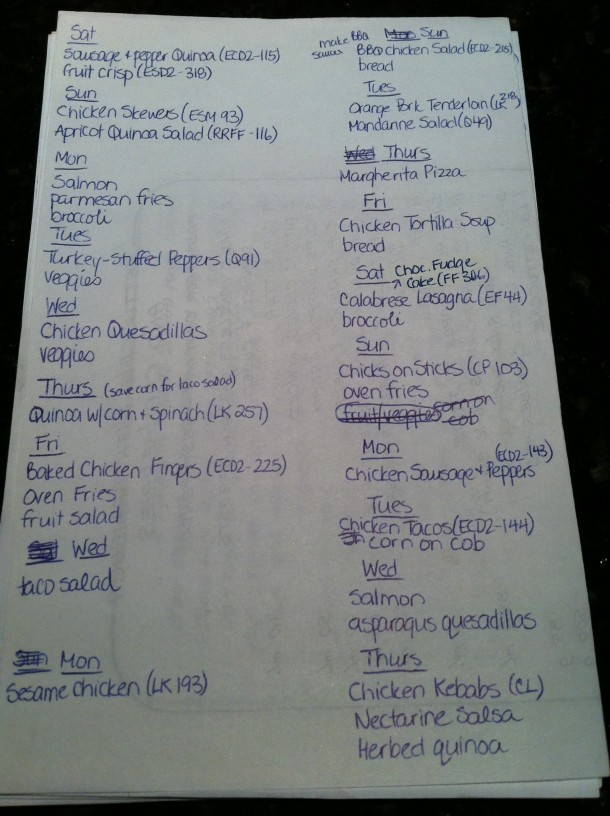 Sat
Sausage + pepper Quinoa (ECD2-115)
fruit crisp (ESD2-318)
Sun
Chicken Skewers (ESM 93)
Apricot Quinoa Salad (RRFF-116)
Mon
Salmon
parmesan fries
broccoli
Tues
Turkey-Stuffed Peppers (Q91)
veggies
Wed
Chicken Quesadillas
veggies
Thurs (save corn for taco salad)
Quinoa w/corn + Spinach (LK 257)
Fri
Baked Chicken Fingers (ECD2-225)
Oven Fries
fruit salad
Wed
taco salad
Mon
Sesame Chicken (LK 193)
make BBQ
sauce
Mon Sun
BBQ Chicken Salad (ECD2-215)
bread
Tues
Orange Pork Tenderloin (LK 218)
Mandarine Salad (D49)
Wed Thurs
Margherita Pizza
Fri
Chicken Tortilla Soup
bread
Sat
Choc. Fudge
Cake (FF 306)
Calabrese Lasagna (EF 44)
broccoli
Sun
Chicks on Sticks (CP 103)
oven fries
fruit/veggies corn on
cob
Mon
(ECD2-143)
Chicken Sausage + Peppers
Tues
Chicken Tacos (ECD2-144)
corn on cob
Wed
Salmon
asparagus quesadillas
Thurs
Chicken Kebabs (CL)
Nectarine Salsa
Herbed quinoa